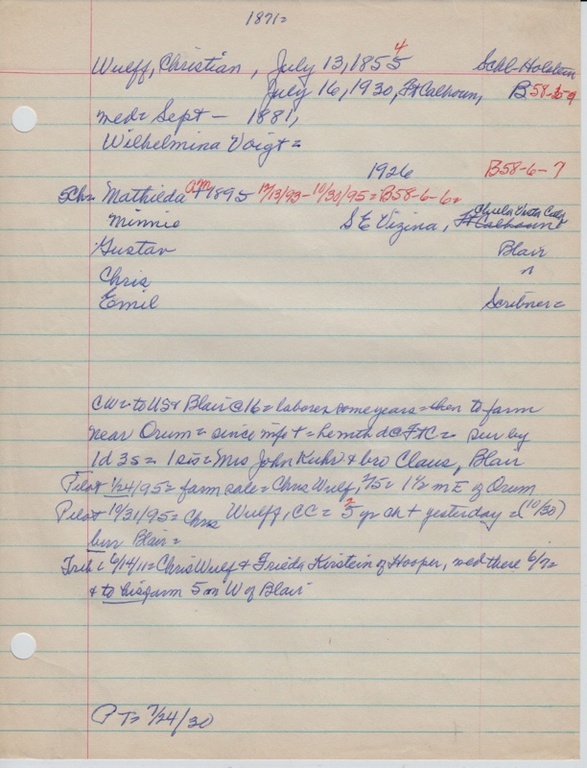 1871=
4
Wulff, Christian, July 13, 1855 Schl-Holstein
July 16, 1930, Ft Calhoun, B58-
med= Sept - 1881,
Wilhelmina Voigt=
1926 B58-6-7
5ch= Mathilda am + 1895 12/13/93-10/30/95= B58-6-6=
Minnie S E Vizina, Ft Calhoun Chula Vista Calif
Gustav Blair
Chris "
Emil Scribner=
CW= to US & Blair @16= laborer some years= then to farm
near Orum= since mft= he mth d@FtC= sur by
1d 3s= 1 sis= Mrs John Kuhr & bro Claus, Blair
Pilot 1/24/95= farm sale= Chris Wulf, 1 1/2 m E of Orum
Pilot 10/31/95= Chris Wulff, CC= 2 yr ch + yesterday= (10/30)
bur Blair=
Trib= 6/14/11= Chris Wulf & Frieda Kirstein of Hooper, wed there 6/7=
& to his farm 5 m W of Blair
PT= 7/24/30